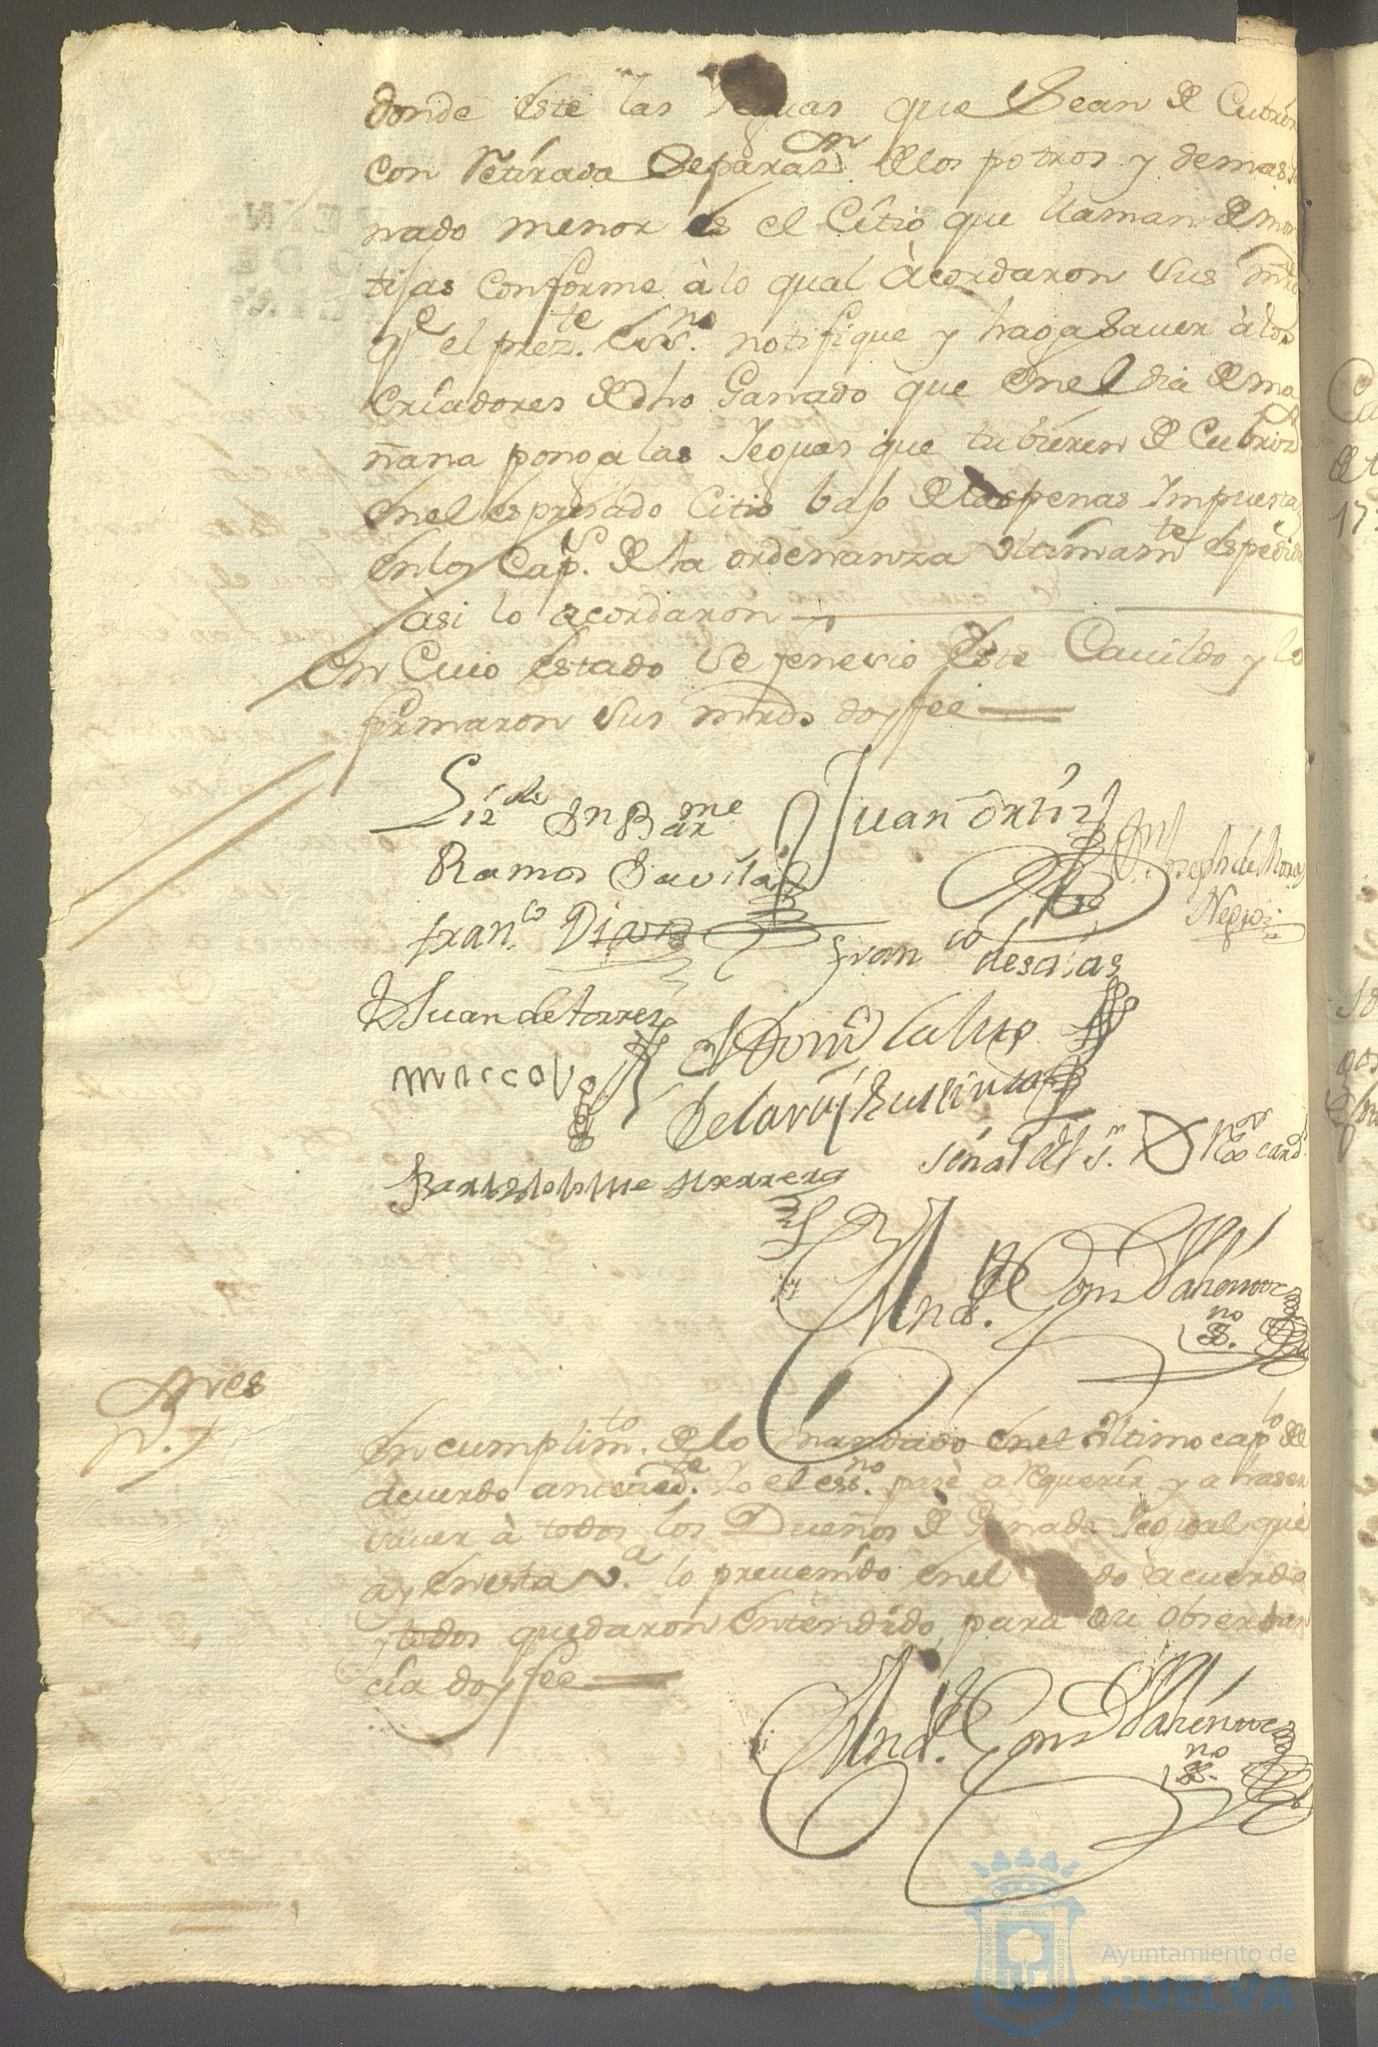 donde este las Yeguas que Sean de Cubrir
con Retirada Separasn. de los potros y demas
nado menor es el Citio que llaman de mon
tijas conforme à lo qual àcordaron sus mrds
qe el prezte. essno. notifique y haga Sauer à los
Criadores de dho Ganado que en el dia de ma
ñana ponga las Yeguas que tubieren de Cubrir
en el espresado Citio bajo de las penas Impuestas
en los Caps. de la ordenanza ultimamte espedida
àsi lo acordaron
En Cuio estado se fenesio este Cauildo y lo
firmaron sus mrds doy fee
Lizdo Dn Barme
Ramos Dauila
Juan Ortiz
Dn Joseph de Mora
Negro
franco Diaz
franco de salas
D Juan de torres
Domo Calbo
de la
Bartholome Herrera
señal del sr.
Andr
no
En cumplimto. de lo mandado en el Ultimo capo del
acuerdo anteredte. Yo el essno. pasè a Requerir y a haser
sauer à todos los Dueños de Ganado Yegual que
ay en esta Va. lo preuenido en el do acuerdo
y todos quedaron entendido para su obserban
cia doy fee
Andr
no
Ayuntamiento de
HUELVA